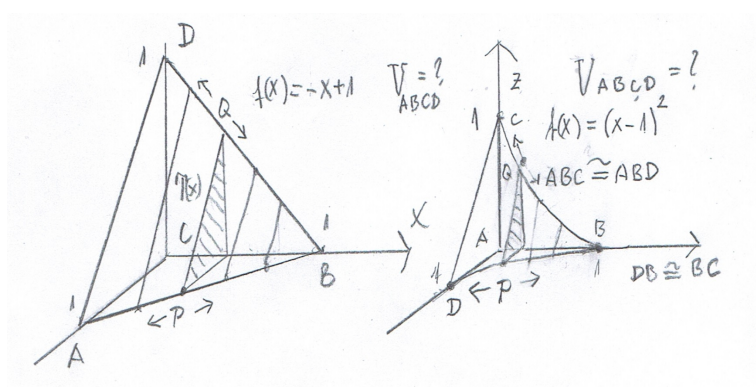 D
1
Q
f(x)=-x+1
V=?
ABCD
T(x)
C
1
X
B
1
A
←P→
Z
V ABCD=?
1
C
f(x)=(x-1)²
Q
ABC≅ABD
A
B
1
1
D
←P→
DB≅BC